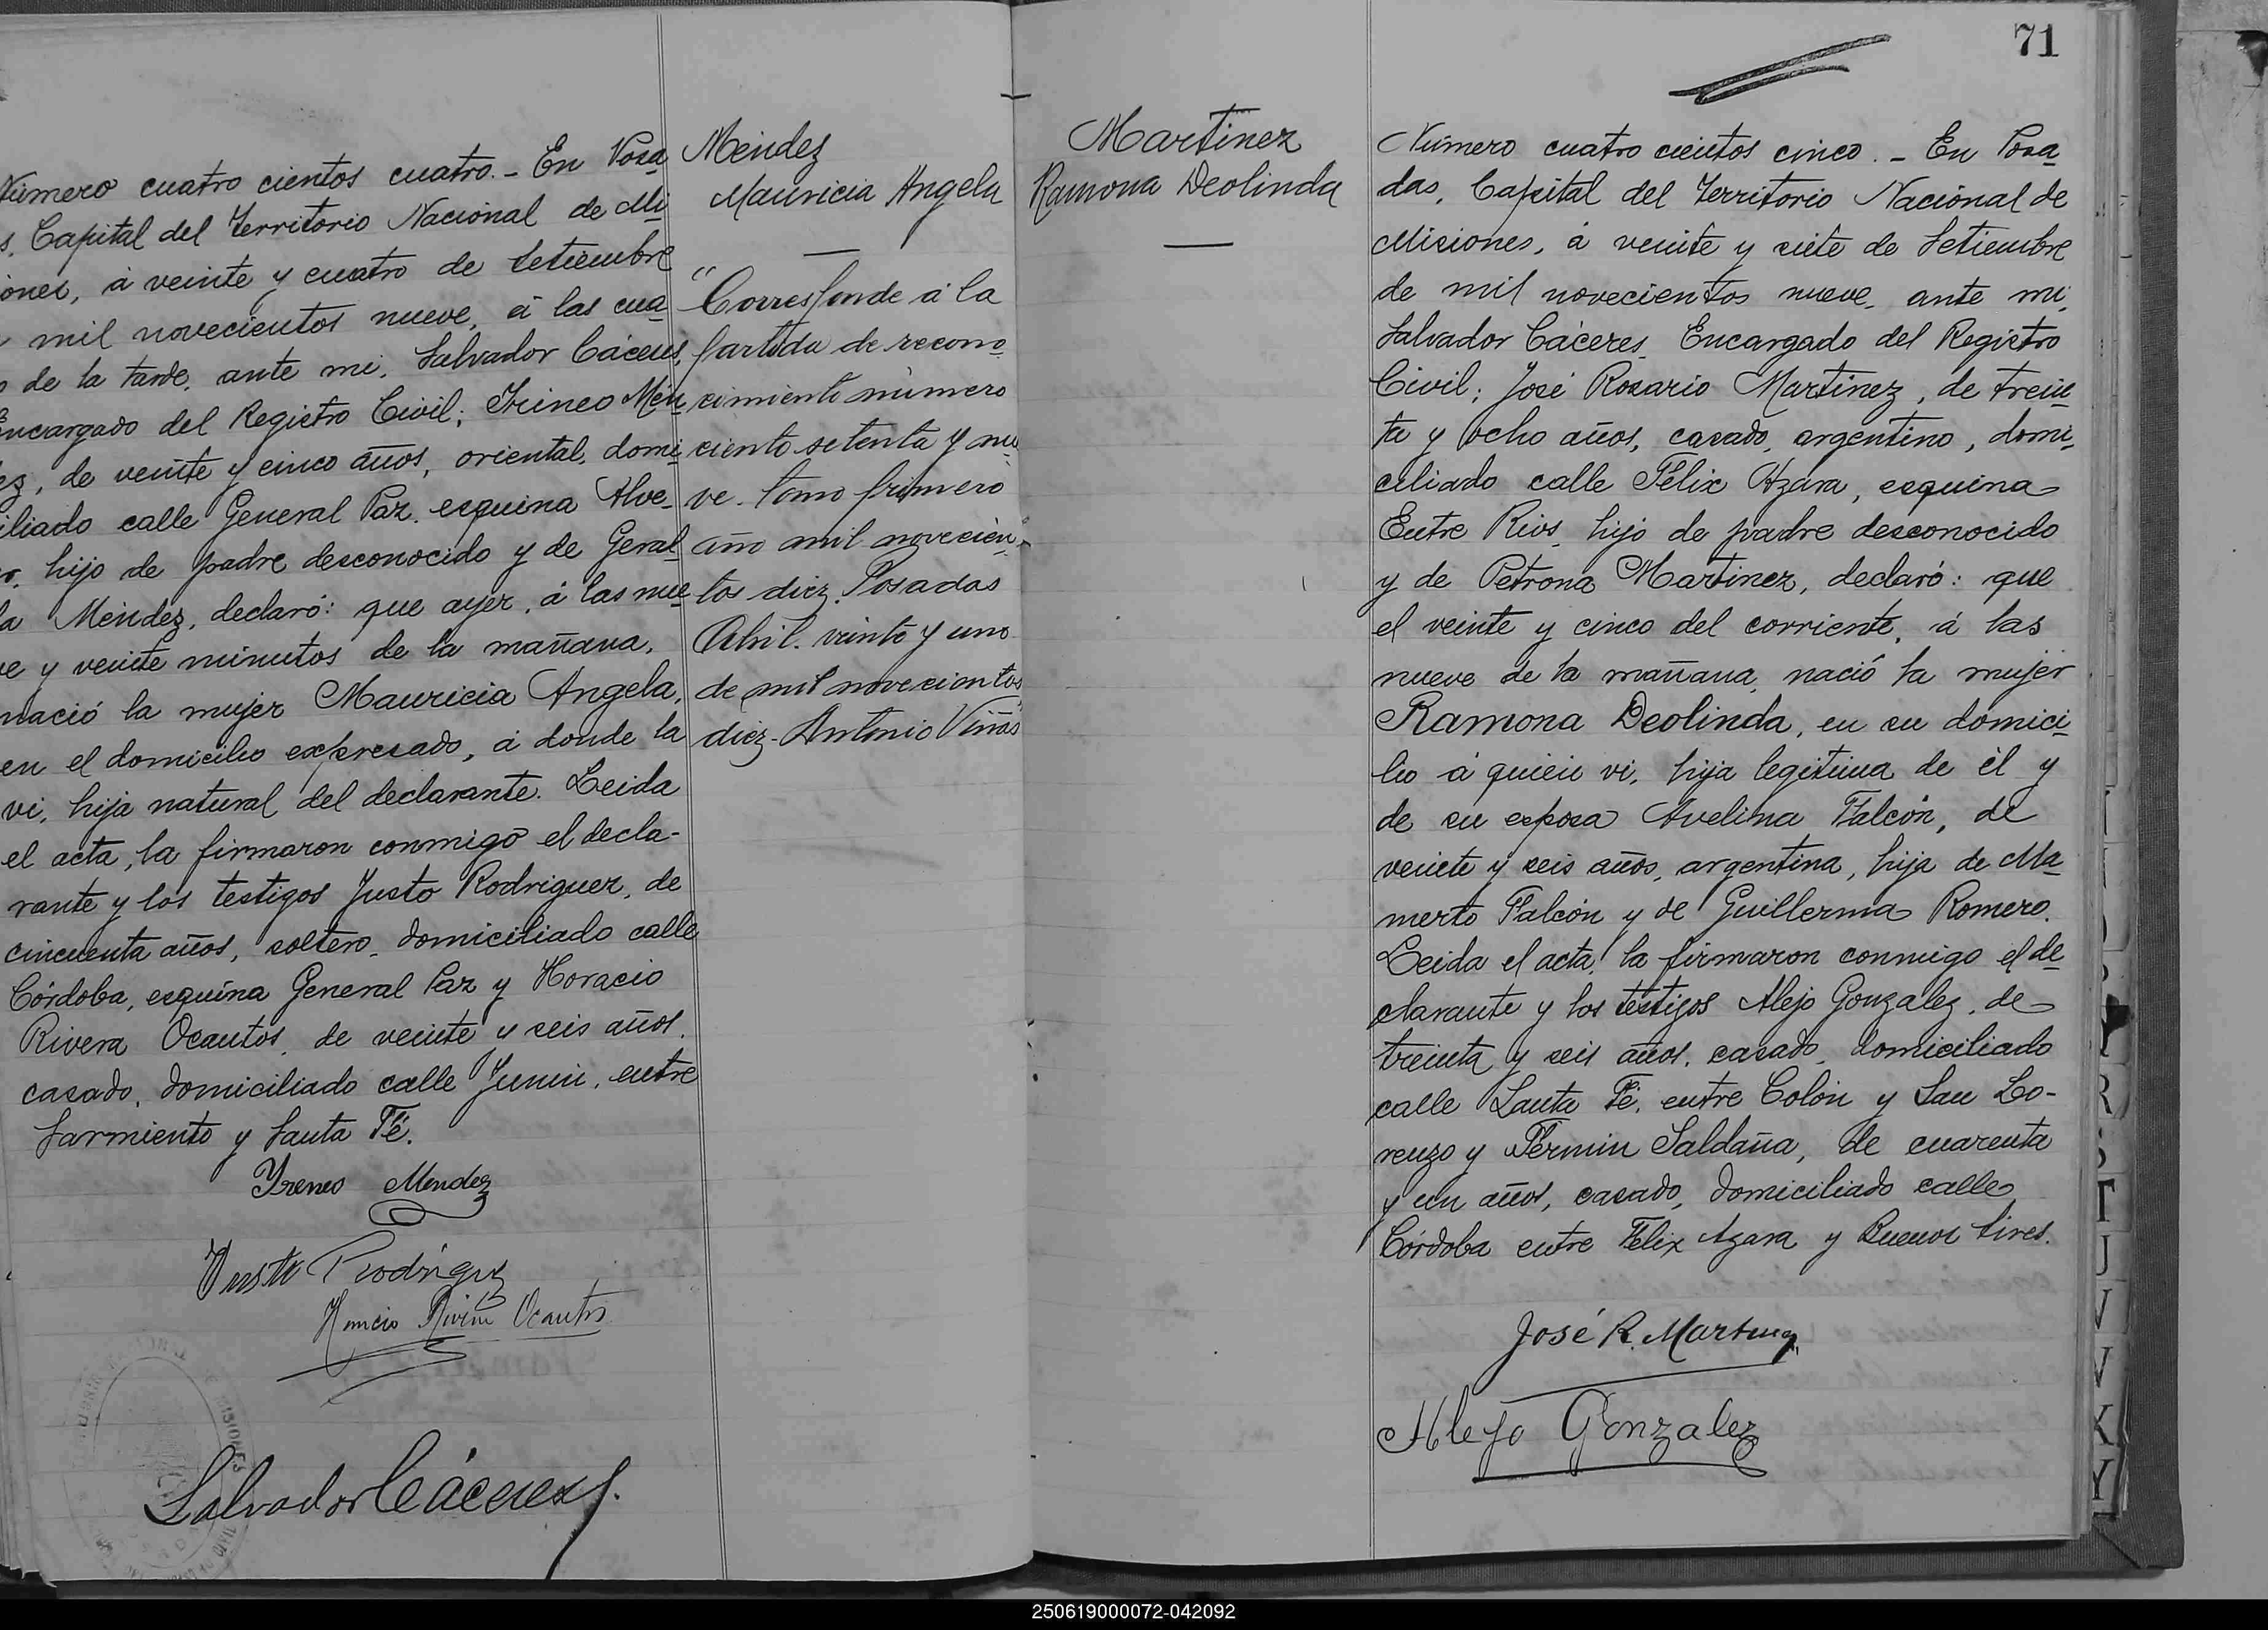 Número cuatro cientos cuatro. - En Posa
s. Capital del Territorio Nacional de Mi
iones, á veinte y cuatro de Setiembre
mil novecientos nueve, á las cua
o de la tarde, ante mi, Salvador Cáceres,
Encargado del Registro Civil; Irineo Mén
ez, de veinte y cinco años, oriental, domi
iliado calle General Paz, esquina Alve-
r, hijo de padre desconocido y de Geral
a Méndez, declaró: que ayer, á las nue
ve y veinte minutos de la mañana,
nació la mujer Mauricia Angela,
en el domicilio expresado, á donde la
vi, hija natural del declarante. Leida
el acta, la firmaron conmigo el decla-
rante y los testigos Justo Rodriguez, de
cincuenta años, soltero, domiciliado calle
Córdoba, esquina General Paz y Horacio
Rivera Ocantos, de veinte y seis años,
casado, domiciliado calle Junin, entre
Sarmiento y Santa Fé.
Yreneo Mendez
Justo Rodriguz
Horacio Rivera Ocantos
Salvador Cáceres
Méndez
Mauricia Angela
"Corresponde á la
partida de recono
cimiento número
ciento setenta y nu
ve. tomo primero
año mil novecien
tos diez. Posadas
Abril. veinte y uno
de mil novecientos
diez - Antonio Viñas
71
Martinez
Ramona Deolinda
Número cuatro cientos cinco. - En Posa
das, Capital del Territorio Nacional de
Misiones, á veinte y siete de Setiembre
de mil novecientos nueve, ante mi,
Salvador Cáceres, Encargado del Registro
Civil; José Rosario Martinez, de trein
ta y ocho años, casado, argentino, domi
ciliado calle Félix Azara, esquina
Entre Rios, hijo de padre desconocido
y de Petrona Martinez, declaró: que
el veinte y cinco del corriente, á las
nueve de la mañana, nació la mujer
Ramona Deolinda, en su domici
lio á quien vi, hija legitima de él y
de su esposa Avelina Falcón, de
veinte y seis años, argentina, hija de Ma
merto Falcón y de Guillerma Romero.
Leida el acta, la firmaron conmigo el de
clarante y los testigos Alejo Gonzalez, de
treinta y seis años, casado, domiciliado
calle Santa Fé, entre Colón y San Lo-
renzo y Fermin Saldaña, de cuarenta
y un años, casado, domiciliado calle
Córdoba entre Félix Azara y Buenos Aires.
José R. Martinez
Alejo Gonzalez
R
S
T
U
V
V
X
Y
250619000072-042092